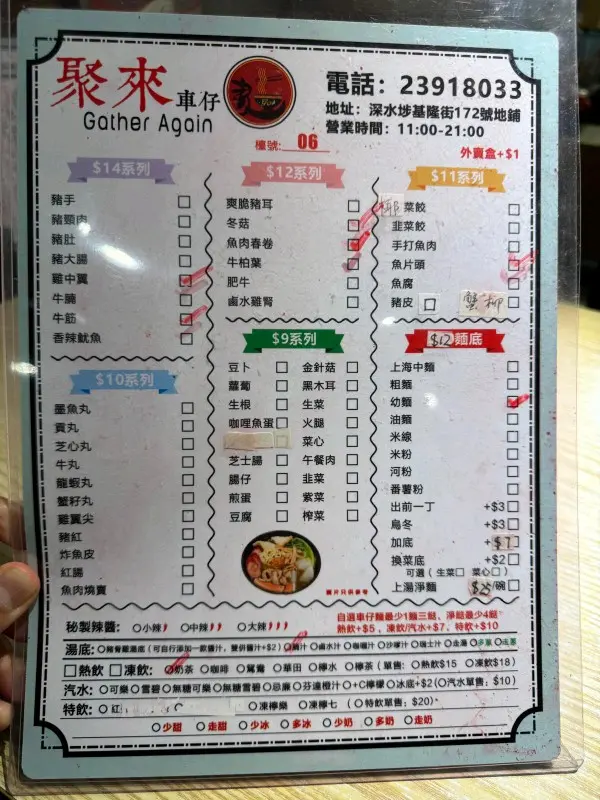 聚來車仔
Gather Again
電話：23918033
地址：深水埗基隆街172號地鋪
營業時間：11:00-21:00
檯號: 06
外賣盒+$1
$14系列
豬手
豬頸肉
豬肚
豬大腸
雞中翼
牛腩
牛筋
香辣魷魚
$12系列
爽脆豬耳
冬菇
魚肉春卷
牛柏葉
肥牛
鹵水雞腎
$11系列
菜餃
韭菜餃
手打魚肉
魚片頭
魚腐
豬皮 蟹柳
$10系列
墨魚丸
貢丸
芝心丸
牛丸
龍蝦丸
蟹籽丸
雞翼尖
豬紅
炸魚皮
紅腸
魚肉燒賣
$9系列
豆卜 金針菇
蘿蔔 黑木耳
生根 生菜
咖哩魚蛋 火腿
菜心
芝士腸 午餐肉
腸仔 韭菜
煎蛋 紫菜
豆腐 榨菜
圖片只供參考
$12麵底
上海中麵
粗麵
幼麵
油麵
米線
米粉
河粉
番薯粉
出前一丁 +$3
烏冬 +$3
加底 +$7
換菜底 +$2
可選（生菜 菜心）
上湯淨麵 $25/碗
秘製辣醬： 小辣 中辣 大辣
自選車仔麵最少1麵三餸、淨餸最少4餸
熱飲+$5﹐凍飲/汽水+$7、特飲+$10
湯底： 豬骨雞湯底（可自行添加一款醬汁，雙併醬汁+$2） 腩汁 鹵水汁 咖喱汁 沙嗲汁 瑞士汁 走蔥 多蔥 走蔥
熱飲 凍飲： 奶茶 咖啡 鴛鴦 華田 檸水 檸茶（單售：熱飲$15 凍飲$18）
汽水： 可樂 雪碧 無糖可樂 無糖雪碧 忌廉 芬達橙汁 +C檸檬 冰底+$2（汽水單售：$10）
特飲： 紅 凍檸樂 凍檸七（特飲單售：$20）
少甜 走甜 少冰 多冰 少奶 多奶 走奶